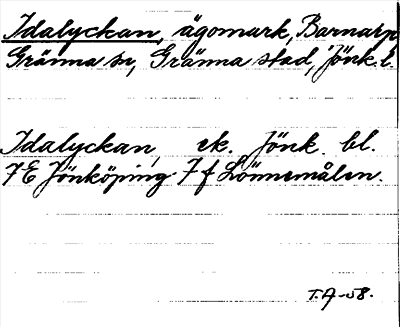 Idalyckan, ägomark, Barnarp,
Gränna sn, Gränna stad, Jönk. l.
Idalyckan, ek. Jönk. bl.
7E Jönköping 7 f Lönnemålen.
T.A-58.